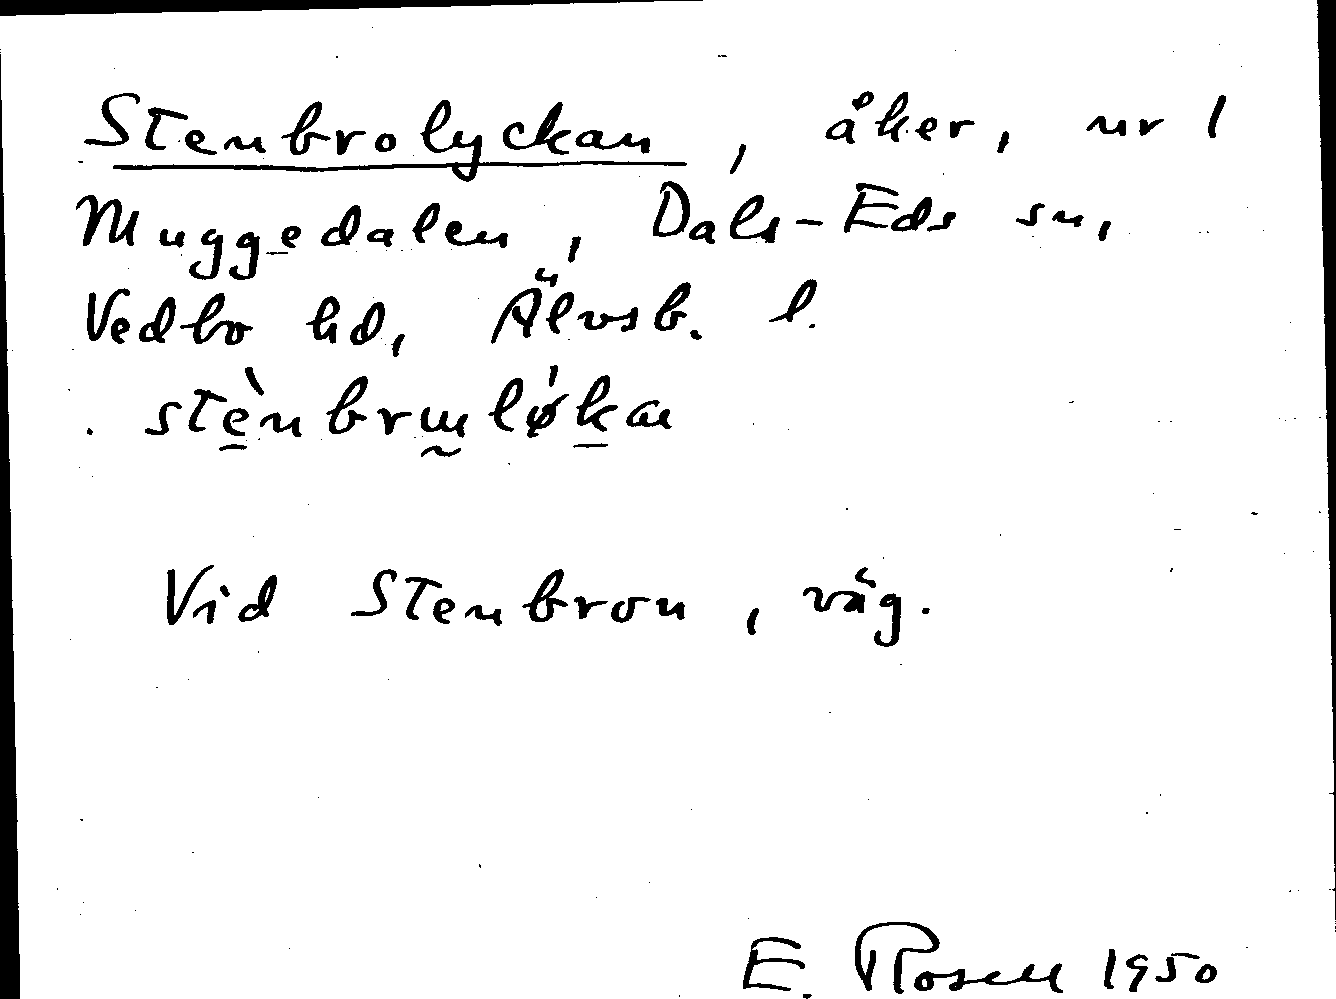 Stenbrolyckan, åker, nr 1
Muggedalen, Dals-Eds sn,
Vedbo hd, Älvsb. l.
stè̱nbrɯ̰lø̍ḵa
Vid Stenbron, väg.
E. Rosell 1950